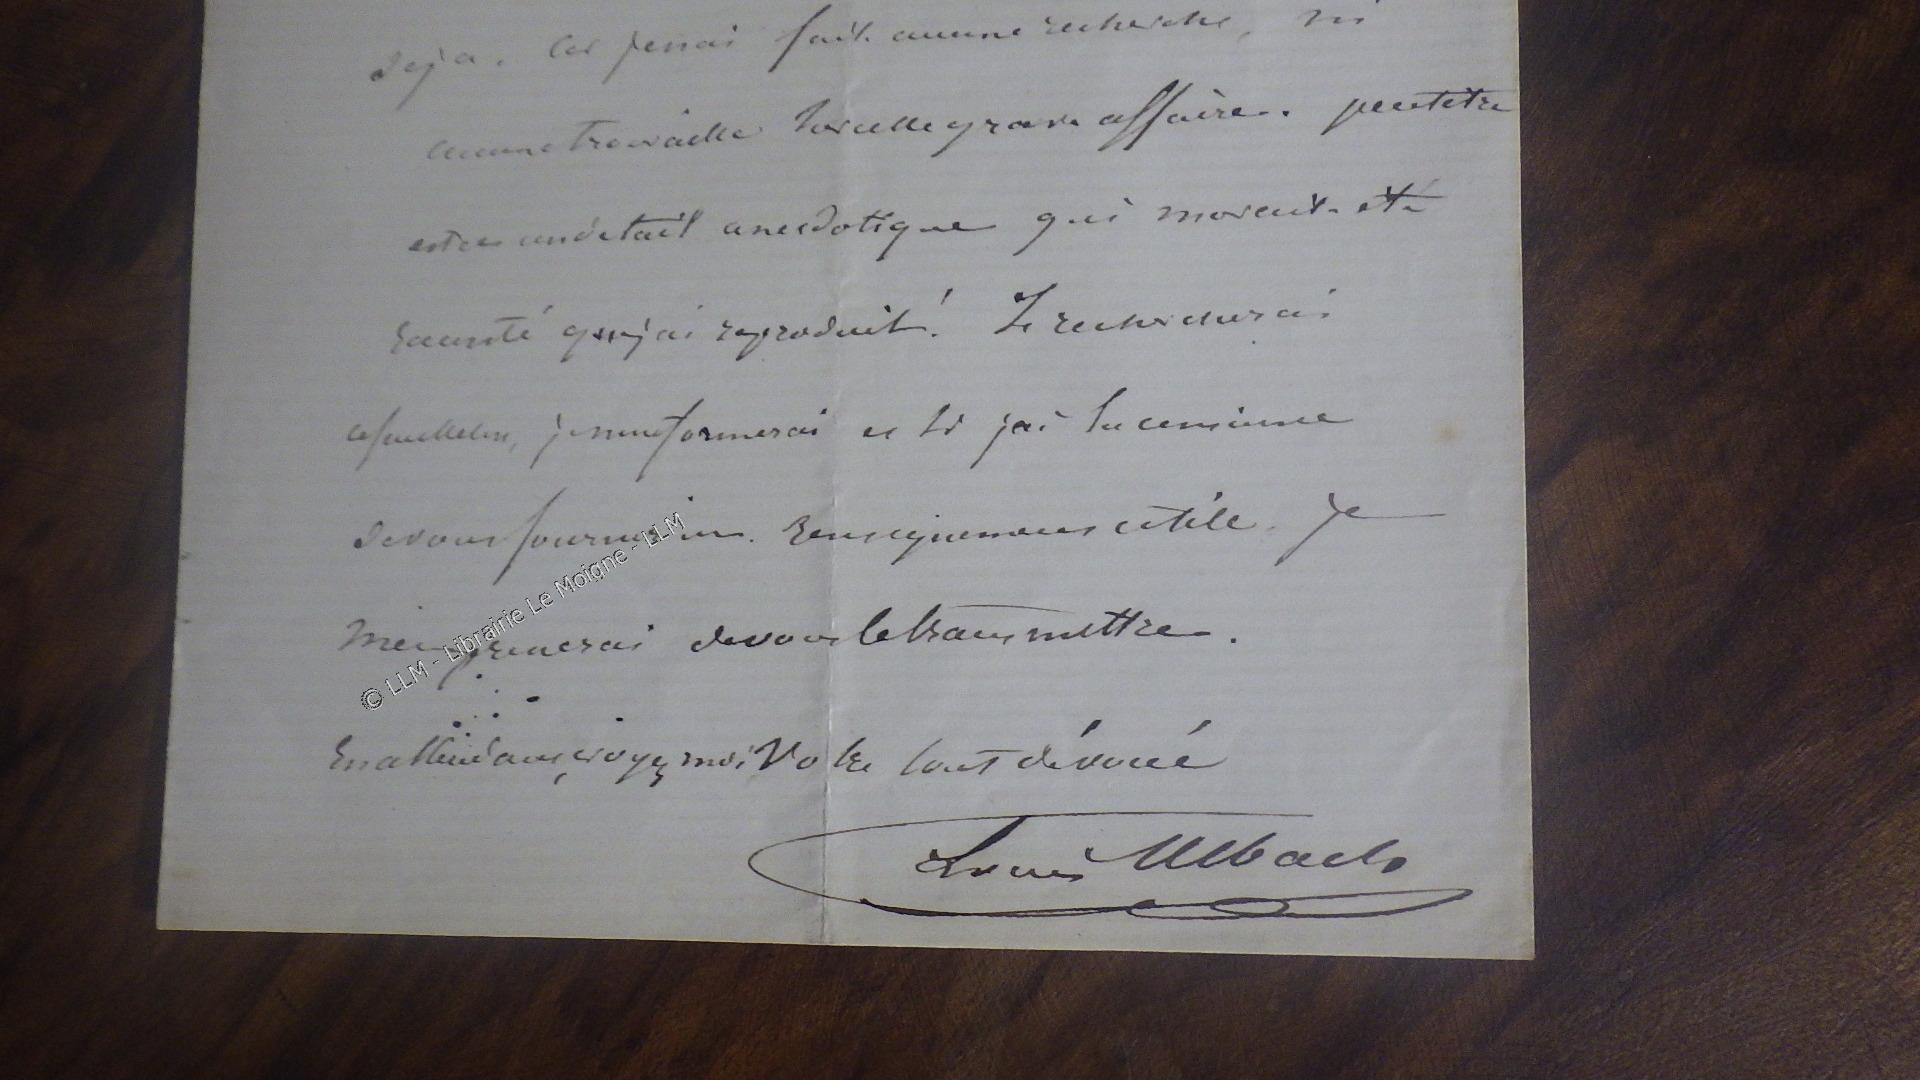 déja. Car je n'ai fait aucune recherche, ni
aucune travaille sur cette grave affaire. peut être
est ce un détail anecdotique qui m'avait été
raconté que j'ai reproduit! Je rechercherai
ce feuilleton, je m'informerai et si j'ai la chance
de vous fournir un renseignement utile. Je
m'empresserai de vous le transmettre.
En attendant, croyez moi Votre tout dévoué
Louis Ulbach
© LLM - Librairie Le Moigne - LLM